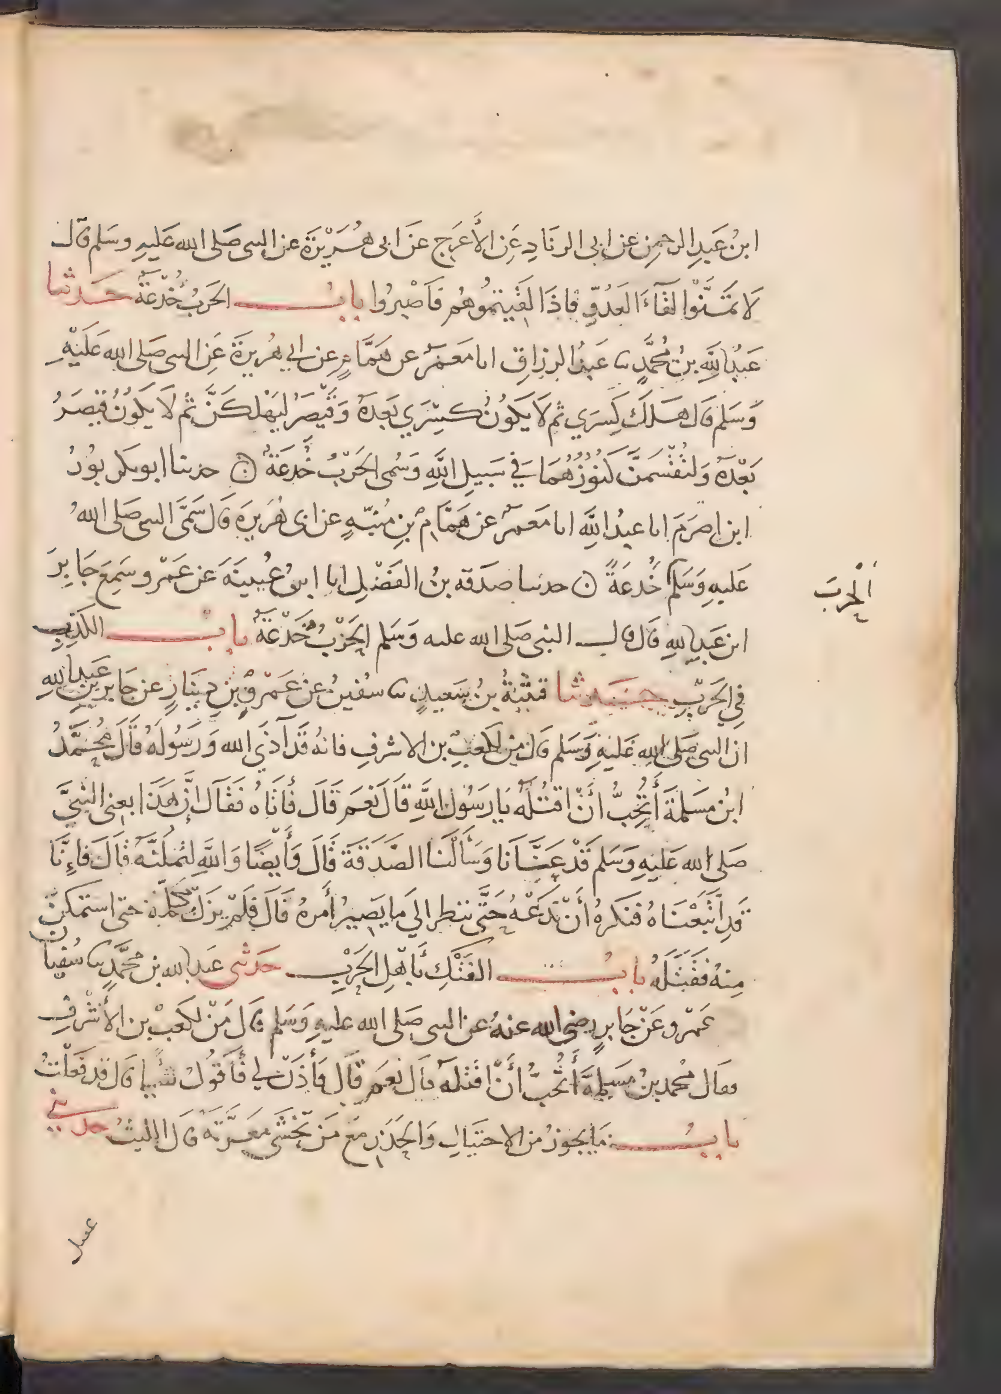 ابنُ عَبدِ الرحمن عن ابي الزنادِ عَنِ الأَعرَج عَن ابي هُرَيْرَةَ عن النبى صَلى الله عَليهِ وسَلم قال
لَا تَمَنَّوْا لِقَآءَ العَدُوِّ فَاذَا لَقِيتمُوهُم فَاصْبِروُا بابُ الحَربُ خُدْعَةٌ حَدثنا
عَبدُ اللَّهِ بنُ مُحمَّدٍ نا عَبدُ الرزاقِ انا مَعمَرٌ عن هَمَّامٍ عن ابي هُرَيرةَ عَنِ النبى صَلى الله عَلَيْهِ
وَسَلم قال هَلَكَ كِسرَي ثم لَا يَكونُ كِسرَي بَعدَهُ وَقَيْصَرُ ليَهْلِكَنَّ ثم لَا يَكوُنُ قَيصَرُ
بَعْدَهُ وَلتُقْسَمَنَّ كنُوُزُهُمَا في سَبيلِ اللَّهِ وَسَمى الحَرْبَ خُدعَةً ن حدثنا ابو بكر بُورُ
ابن اصرَمَ انا عبدُ اللَّهِ انا مَعمَرٌ عن هَمَّامِ بنِ مُنبّهٍ عن ابي هُرَيرَةَ قال سَمَّى النبى صَلى اللهُ
عَليهِ وَسَلم خُدعَةً ن حدثنا صدَقه بنُ الفَضْلِ انا ابنُ عُيينَةَ عن عَمْرو سَمِعَ جَابِرَ
الْحَرْبَ
ابن عَبدِ اللهِ قَال قال النبى صَلى الله عليه وَسَلم الحَرْبُ خَدْعَةٌ بابُ الكَذِبِ
فِي الحَرْبِ حَدثنا قتَيْبَةُ بنُ سَعيدٍ نا سُفينُ عن عَمْرِو بنِ دِينَارٍ عن جَابِرِ بنِ عَبدِ اللهِ
ان النبى صَلى الله عَليهِ وَسَلم قال مَن لِكعبِ بن الاشرفِ فانهُ قَد آذَي الله وَرَسُولَهُ قَالَ مُحَمَّدُ
ابنُ مَسلمَةَ أَتُحِبُّ أَنْ اقتُلَهُ يَا رَسُولَ اللَّهِ قَالَ نَعَم قَالَ فَأَتَاهُ فَقَالَ إنَّ هَذَا يعنى النبيَّ
صَلى الله عَليهِ وَسَلم قَدْ عَنَّانَا وَسَأَلَنَا الصَّدَقَةَ قَالَ وَأَيْضًا وَاللَّهِ لتَمَلُّنَّهُ قَالَ فَإِنَّا
قَدِ اتَّبعْنَاهُ فَنَكرهُ أَنْ نَدَعَهُ حَتَّى ننظر الَي مَا يَصِيرُ أَمرهُ قَالَ فَلَمْ يزَلْ يُكَلِّمهُ حتى استمكنَ
مِنهُ فَقَتَلَهُ بابُ الفَتْكِ بأَهْلِ الحَرْبِ حَدثنى عَبدُ الله بن محمَّدٍ نا سُفيانُ
عَن عَمْرو عَنْ جَابِرٍ رضي الله عنهُ عن النبى صَلى الله عليهِ وَسَلم قال مَنْ لِكَعْبِ بن الأَشْرَفِ
فقال محمد بنُ مَسلمةَ أَتُحبُّ أَنْ اقتلَهُ قال نعَم قَالَ فَأْذَنْ لي فَأَقُولَ شيئا قال قد فَعَلْتُ
بابُ مَا يجوزُ من الاحتيالِ وَالحَذَرِ مَعَ مَنْ يَخْشَى مَعَرَّتَهُ قال الليثُ حدثني
عقيل